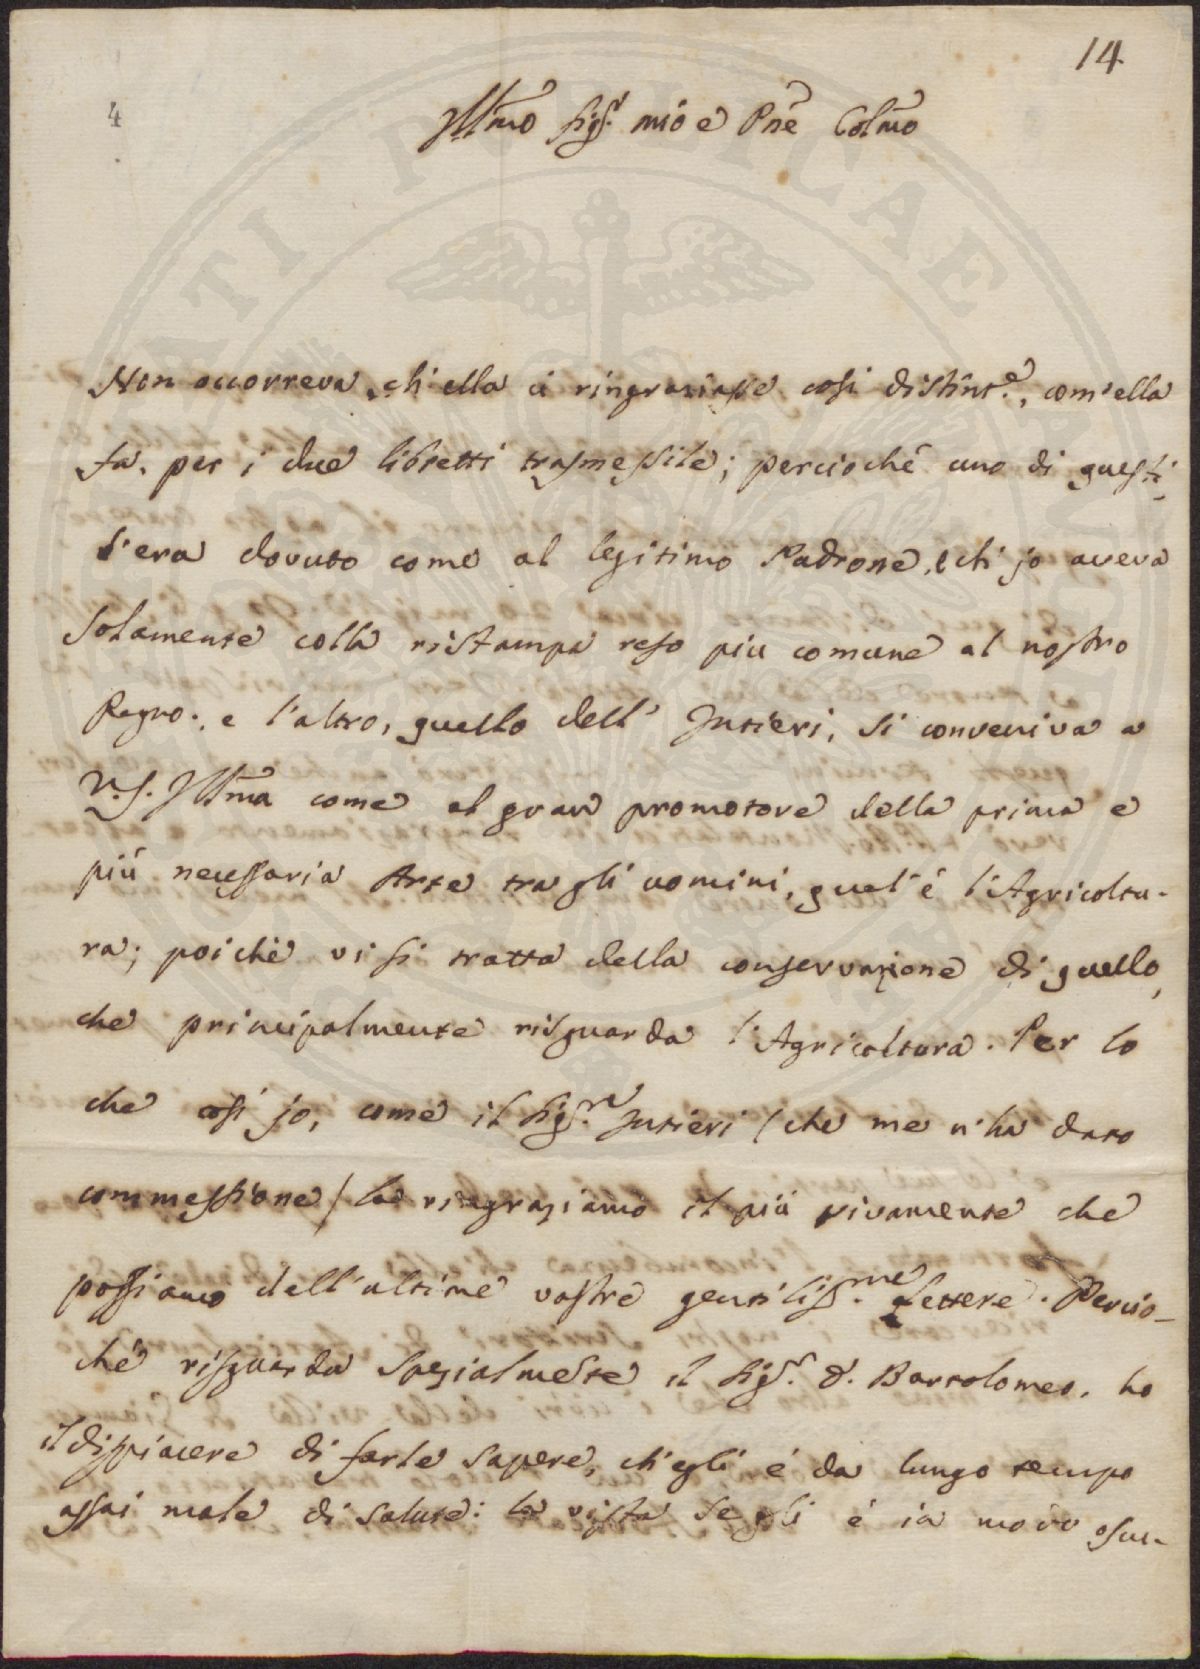 14
4
Illmo Sigr. mio e Pne Colmo
Non occorreva, ch'ella ci ringraziasse così distinte., com'ella
fa, per i due libretti trasmessile; percioché uno di questi
l'era dovuto come al legitimo Padrone, e ch'io aveva
solamente colla ristampa reso piu comune al nostro
Regno; e l'altro, quello dell' Intieri, si conveniva a
V.S. Illma come al gran promotore della prima e
più necessaria Arte tra gli uomini, qual'é l'Agricoltu-
ra; poiché vi si tratta della conservazione di quello,
che principalmente risguarda l'Agricoltura. Per lo
che così io, come il Sigre. Intieri (che me n'ha dato
commessione) la ringraziamo il più vivamente che
possiamo dell'ultime vostre gentilissme. Lettere. Percio-
ché risguarda spezialmente il Sigr. D. Bartolomeo, ho
il dispiacere di farle sapere, ch'egli é da lungo tempo
assai male di salute: la vista se gli é in modo oscu-